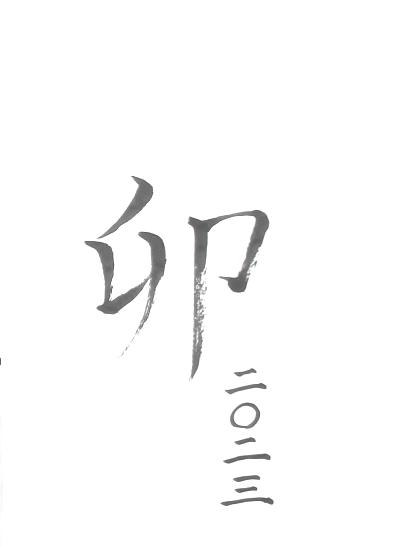 卯
二〇二三